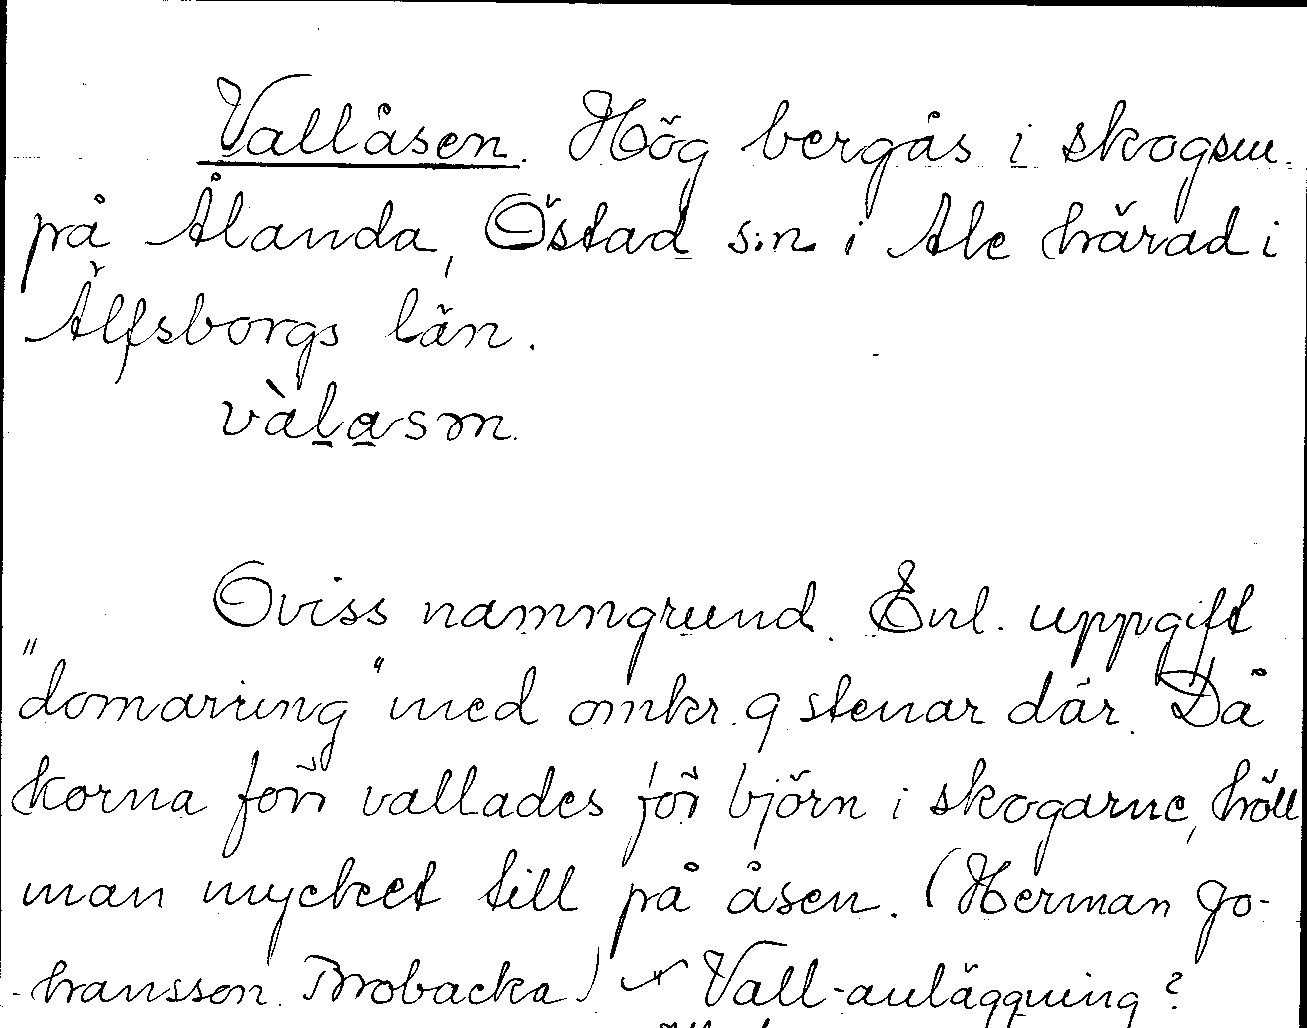 Vallåsen. Hög bergås i skogsm.
på Ålanda, Östad s:n i Ale härad i
Älfsborgs län.
vàlasm.
Oviss namngrund. Enl. uppgift
"domarring" med omkr. 9 stenar där. Då
korna förr vallades för björn i skogarne, höll
man mycket till på åsen. (Herman Jo-
-hansson. Brobacka) Vall-anläggning?